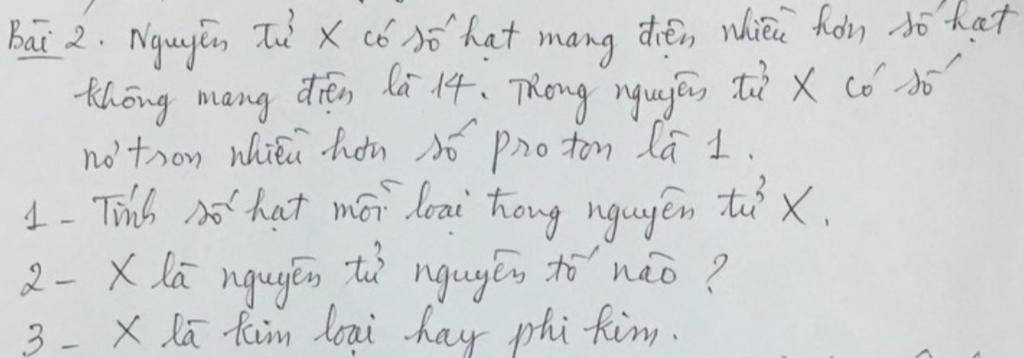 Bài 2. Nguyên tử X có số hạt mang điện nhiều hơn số hạt
không mang điện là 14. Trong nguyên tử X có số
nơtron nhiều hơn số proton là 1.
1 - Tính số hạt mỗi loại trong nguyên tử X.
2 - X là nguyên tử nguyên tố nào ?
3 - X là kim loại hay phi kim.